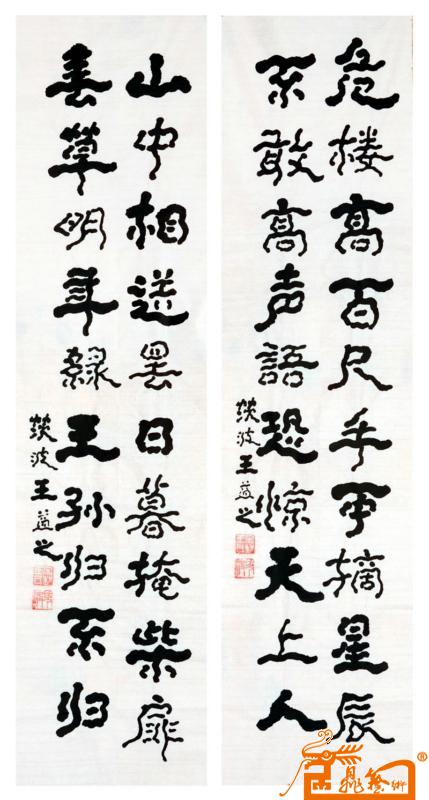 危楼高百尺手可摘星辰
不敢高声語恐惊天上人
波王益之
山中相送罢日暮掩柴扉
春草明年緑王孙归不归
波王益之